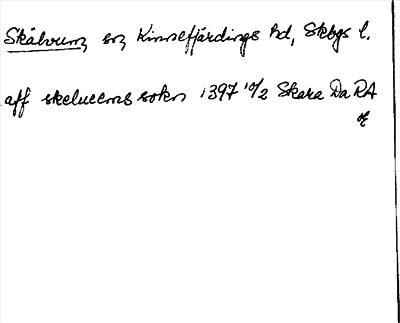 Skälvum, sn, Kinnefjärdings hd, Skbgs l.
aff skeluems sokn 1397 10/2 Skara DaRA